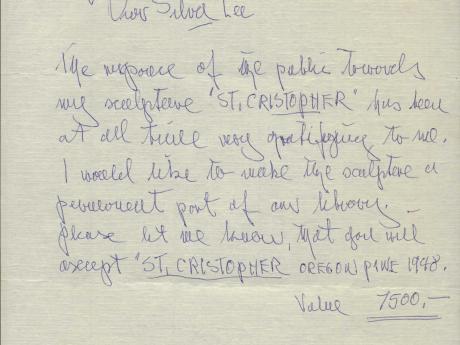 Dear Silva Lee
The response of the public towards
my sculpture "ST. CRISTOPHER" has been
at all time very gratifying to me.
I would like to make the sculpture a
permanent part of our library.
please let me know, that you will
except "ST. CRISTOPHER OREGON PINE 1948.
Value 7500,-